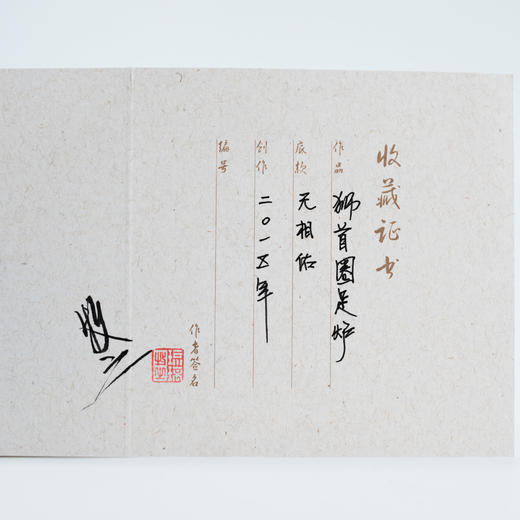 收藏证书
作品 狮首圈足炉
底款 无相佑
创作 二〇一五年
编号
作者签名